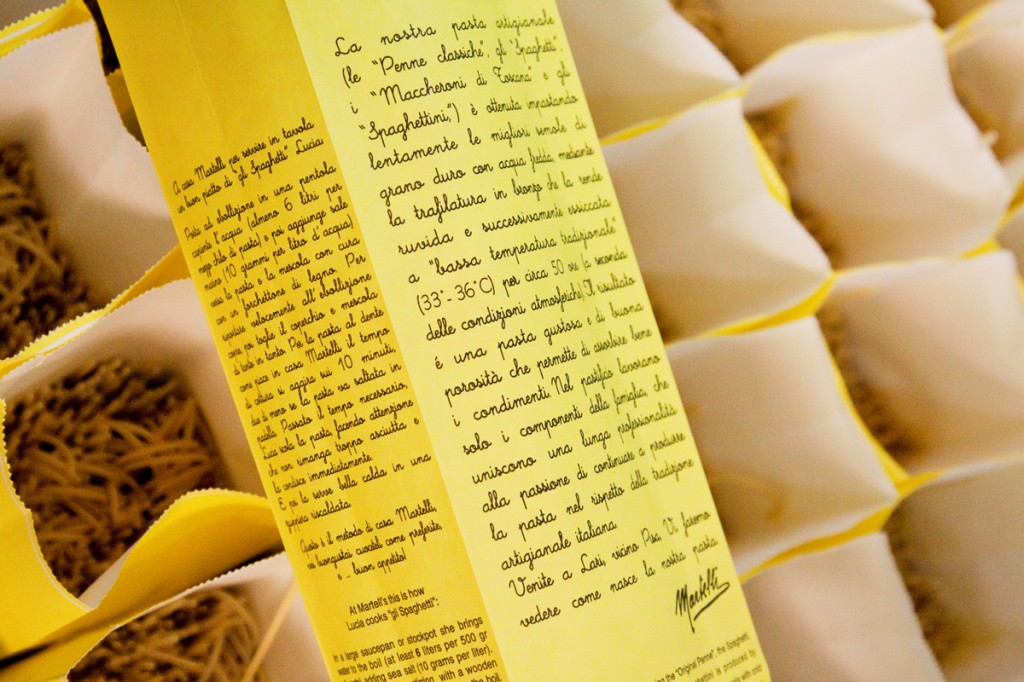 A casa Martelli per servire in tavola
un buon piatto di "gli Spaghetti" Lucia
Porta ad ebollizione in una pentola
capiente l'acqua (almeno 6 litri per
mezzo chilo di pasta) e poi aggiunge sale
marino (10 grammi per litro d'acqua)
versa la pasta e la mescola con cura
con un forchettone di legno. Per
riportare velocemente all'ebollizione
copre, poi toglie il coperchio e mescola
di tanto in tanto. Per la pasta al dente
come piace in casa Martelli il tempo
di cottura si aggira sui 10 minuti,
due di meno se la pasta va saltata in
padella. Passato il tempo necessario,
Lucia scola la pasta, facendo attenzione
che non rimanga troppo asciutta e
la condisce immediatamente.
E poi la serve bella calda in una
zuppiera riscaldata.
Questo è il metodo di casa Martelli,
voi buongustai cuocateli come preferite,
e ... buon appetito!
At Martelli's this is how
Lucia cooks "gli Spaghetti":
In a large saucepan or stockpot she brings
water to the boil (at least 6 liters per 500 gr
adding sea salt (10 grams per liter).
with a wooden
the boil,
La nostra pasta artigianale
(le "Penne classiche", gli "Spaghetti",
i "Maccheroni di Toscana" e gli
"Spaghettini",) è ottenuta impastando
lentamente le migliori semole di
grano duro con acqua fredda, mediante
la trafilatura in bronzo che la rende
ruvida e successivamente essiccata
a "bassa temperatura tradizionale"
(33°-36°C) per circa 50 ore (a seconda
delle condizioni atmosferiche). Il risultato
é una pasta gustosa e di buona
porosità che permette di assorbire bene
i condimenti. Nel pastificio lavorano
solo i componenti della famiglia, che
uniscono una lunga professionalità
alla passione di continuare a produrre
la pasta nel rispetto della tradizione
artigianale italiana.
Venite a Lari, vicino Pisa. Vi faremo
vedere come nasce la nostra pasta.
Martelli
the "Original Penne", the Spaghetti,
is produced by